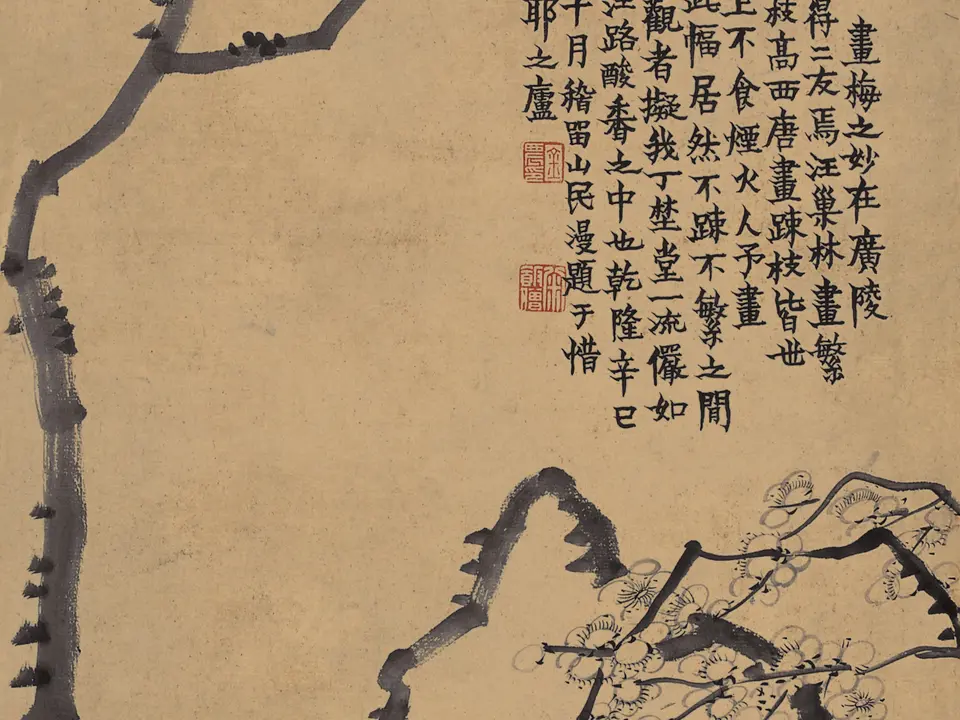 畫梅之妙在廣陵
得二友焉汪巢林畫繁
枝高西唐畫踈枝皆世
上不食煙火人予畫
此幅居然不踈不繁之間
觀者擬我丁埜堂一流儼如
江路酸香之中也乾隆辛巳
十月稽留山民漫題于惜
耶之廬
金農印